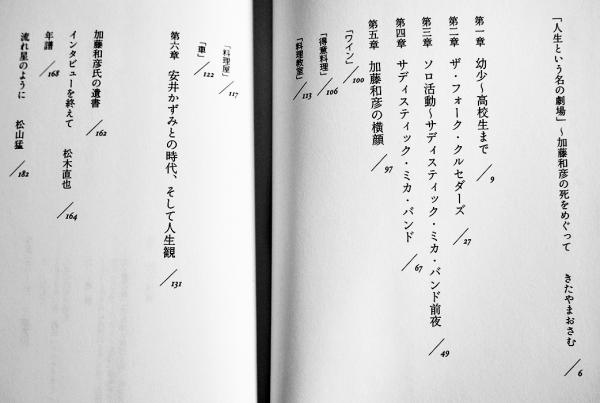 「人生という名の劇場」～加藤和彦の死をめぐって　きたやまおさむ ／6
第一章　幼少～高校生まで ／9
第二章　ザ・フォーク・クルセダーズ ／27
第三章　ソロ活動～サディスティック・ミカ・バンド前夜 ／49
第四章　サディスティック・ミカ・バンド ／67
第五章　加藤和彦の横顔 ／97
「ワイン」 ／100
「得意料理」 ／106
「料理教室」 ／113
「料理屋」 ／117
「車」 ／122
第六章　安井かずみとの時代、そして人生観 ／131
加藤和彦氏の遺書 ／162
インタビューを終えて　松木直也 ／164
年譜 ／168
流れ星のように　松山猛 ／182